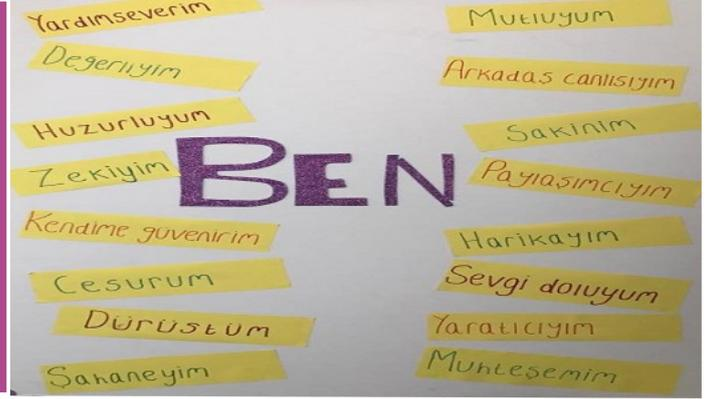 Yardımseverim
Değerliyim
Huzurluyum
Zekiyim
Kendime güvenirim
Cesurum
Dürüstüm
Şahaneyim
BEN
Mutluyum
Arkadaş canlısıyım
Sakinim
Paylaşımcıyım
Harikayım
Sevgi doluyum
Yaratıcıyım
Muhteşemim